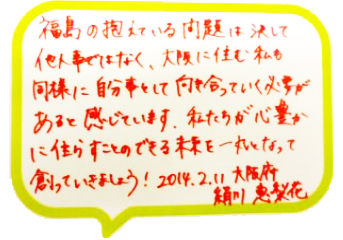 福島の抱えている問題は決して
他人事ではなく、大阪に住む私も
同様に自分事として向き合っていく必要が
あると感じています。私たちが心豊か
に住らすことのできる未来を一丸となって
創っていきましょう！2014.2.11 大阪府
絹川 恵梨花